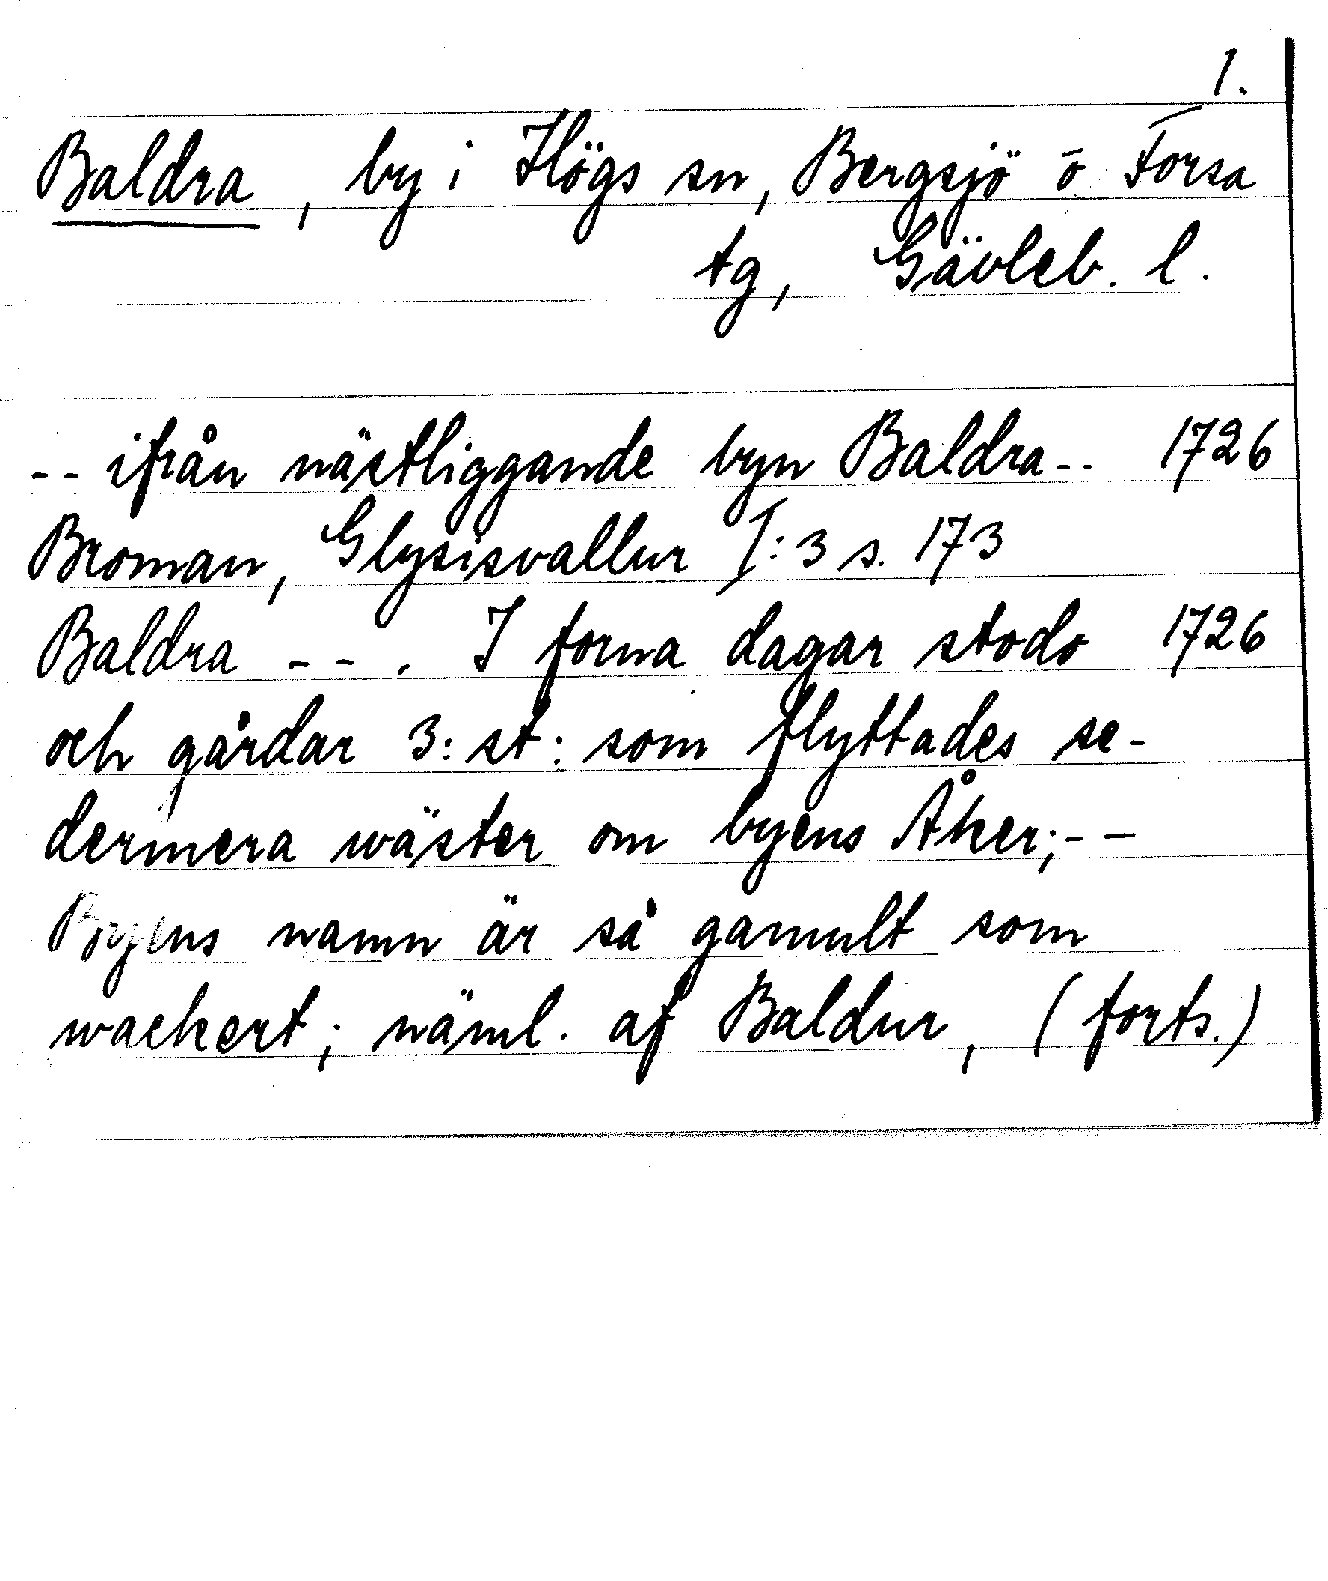 1.
Baldra, by i Högs sn, Bergsjö o. Forsa
tg, Gävleb. l.
-- ifrån nästliggande byn Baldra -- 1726
Broman, Glysisvallur I:3 s. 173
Baldra -- . I forna dagar stodo 1726
och gårdar 3: st: som flyttades se-
dermera wäster om byens Åker; --
Byens namn är så gamult som
wackert; näml. af Baldur, (forts.)